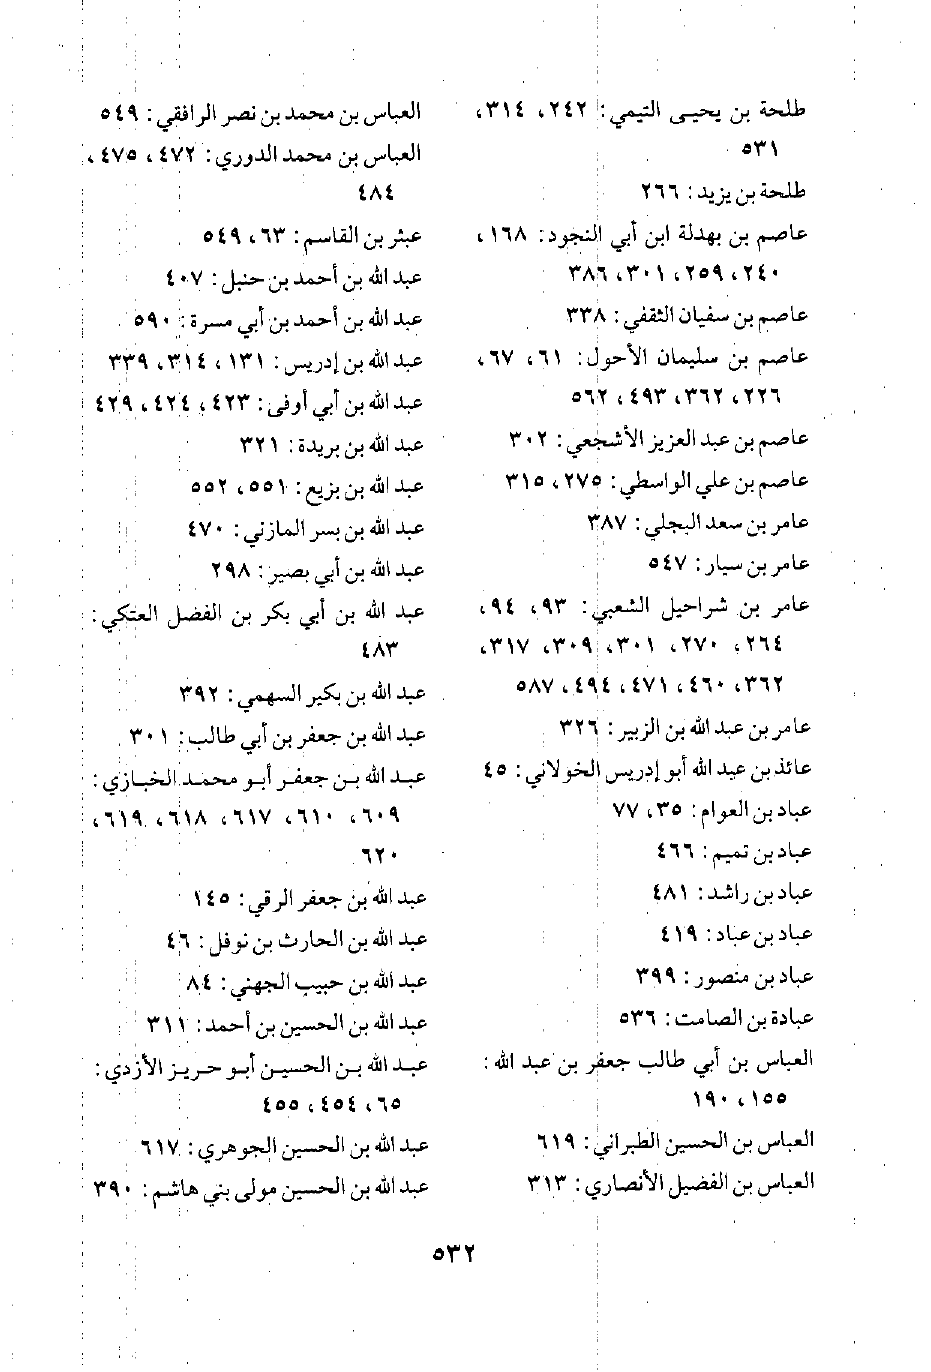 طلحة بن يحيى التيمي: ٢٤٢، ٣١٤،
٥٣١
طلحة بن يزيد: ٢٦٦
عاصم بن بهدلة ابن أبي النجود: ١٦٨،
٢٤٠، ٢٥٩، ٣٠١، ٣٨٦
عاصم بن سفيان الثقفي: ٣٣٨
عاصم بن سليمان الأحول: ٦١، ٦٧،
٢٢٦، ٣٦٢، ٤٩٣، ٥٦٢
عاصم بن عبد العزيز الأشجعي: ٣٠٢
عاصم بن علي الواسطي: ٢٧٥، ٣١٥
عامر بن سعد البجلي: ٣٨٧
عامر بن سيار: ٥٤٧
عامر بن شراحيل الشعبي: ٩٣، ٩٤،
٢٦٤، ٢٧٠، ٣٠١، ٣٠٩، ٣١٧،
٣٦٢، ٤٦٠، ٤٧١، ٤٩٤، ٥٨٧
عامر بن عبد الله بن الزبير: ٣٢٦
عائذ بن عبد الله أبو إدريس الخولاني: ٤٥
عباد بن العوام: ٣٥، ٧٧
عباد بن تميم: ٤٦٦
عباد بن راشد: ٤٨١
عباد بن عباد: ٤١٩
عباد بن منصور: ٣٩٩
عبادة بن الصامت: ٥٣٦
العباس بن أبي طالب جعفر بن عبد الله:
١٥٥، ١٩٠
العباس بن الحسين الطبراني: ٦١٩
العباس بن الفضيل الأنصاري: ٣١٣
العباس بن محمد بن نصر الرافقي: ٥٤٩
العباس بن محمد الدوري: ٤٧٢، ٤٧٥،
٤٨٤
عبثر بن القاسم: ٦٣، ٥٤٩
عبد الله بن أحمد بن حنبل: ٤٠٧
عبد الله بن أحمد بن أبي مسرة: ٥٩٠
عبد الله بن إدريس: ١٣١، ٣١٤، ٣٣٩
عبد الله بن أبي أوفى: ٤٢٣، ٤٢٤، ٤٢٩
عبد الله بن بريدة: ٣٢١
عبد الله بن بزيع: ٥٥١، ٥٥٢
عبد الله بن بسر المازني: ٤٧٠
عبد الله بن أبي بصير: ٢٩٨
عبد الله بن أبي بكر بن الفضل العتكي:
٤٨٣
عبد الله بن بكير السهمي: ٣٩٢
عبد الله بن جعفر بن أبي طالب: ٣٠١
عبد الله بن جعفر أبو محمد الخبازي:
٦٠٩، ٦١٠، ٦١٧، ٦١٨، ٦١٩،
٦٢٠
عبد الله بن جعفر الرقي: ١٤٥
عبد الله بن الحارث بن نوفل: ٤٦
عبد الله بن حبيب الجهني: ٨٤
عبد الله بن الحسين بن أحمد: ٣١١
عبد الله بن الحسين أبو حريز الأزدي:
٦٥، ٤٥٤، ٤٥٥
عبد الله بن الحسين الجوهري: ٦١٧
عبد الله بن الحسين مولى بني هاشم: ٣٩٠
٥٣٢